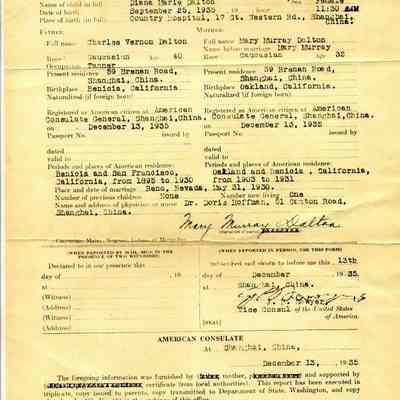 Name of child in full Diane Marie Dalton Sex Female
Date of birth September 25, 1935 Hour 11:50 AM
Place of birth (in full) Country Hospital, 17 Gt. Western Rd., Shanghai, China.
FATHER: MOTHER:
Full name Charles Vernon Dalton Full name Mary Murray Dalton
Name before marriage Mary Murray
Race Caucasian Age 40 Race Caucasian Age 32
Occupation Tanner
Present residence 59 Brenan Road, Present residence 59 Brenan Road,
Shanghai, China. Shanghai, China.
Birthplace Benicia, California Birthplace Oakland, California.
Naturalized (if foreign born) Naturalized (if foreign born)
Registered as American citizen at American Registered as American citizen at American
Consulate General, Shanghai, China Consulate General, Shanghai, China.
on December 13, 1935 on December 13, 1935
Passport No. issued by Passport No. issued by
dated dated
valid to valid to
Periods and places of American residence: Periods and places of American residence:
Benicia and San Francisco, Oakland and Benicia, California,
California, from 1895 to 1930 from 1903 to 1931
Place and date of marriage Reno, Nevada, May 31, 1930.
Number of previous children None Number now living One
Name and address of physician or nurse Dr. Doris Hoffman, 51 Canton Road,
Shanghai, China.
Mary Murray Dalton
(WHEN REPORTED BY MAIL, SIGN IN THE PRESENCE OF TWO WITNESSES) (WHEN REPORTED IN PERSON, USE THIS FORM)
Declared to in our presence this Subscribed and sworn to before me this 13th
day of , 19 day of December , 1935
at at Shanghai, China.
(Witness)
(Address) Vice Consul of the United States
(Witness) of America.
(Address)
AMERICAN CONSULATE
At Shanghai, China.
December 13, 1935
The foregoing information was furnished by mother, and supported by
certificate from local authorities). This report has been executed in
triplicate, copy issued to parents, copy transmitted to Department of State, Washington, and copy